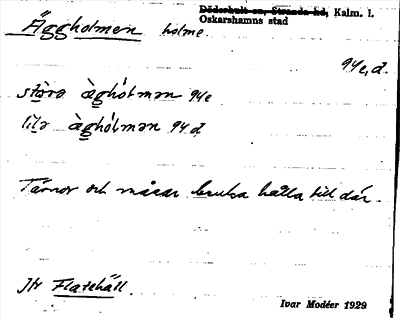 Äggholmen holme
Döderhult sn, Stranda hd, Kalm. l.
Oskarshamns stad
94e, d.
sto̱ra àghólmǝn 94e
lilǝ àghólmǝn 94d
Tärnor och måsar bruka hålla till där.
Jfr Flatehäll
Ivar Modéer 1929